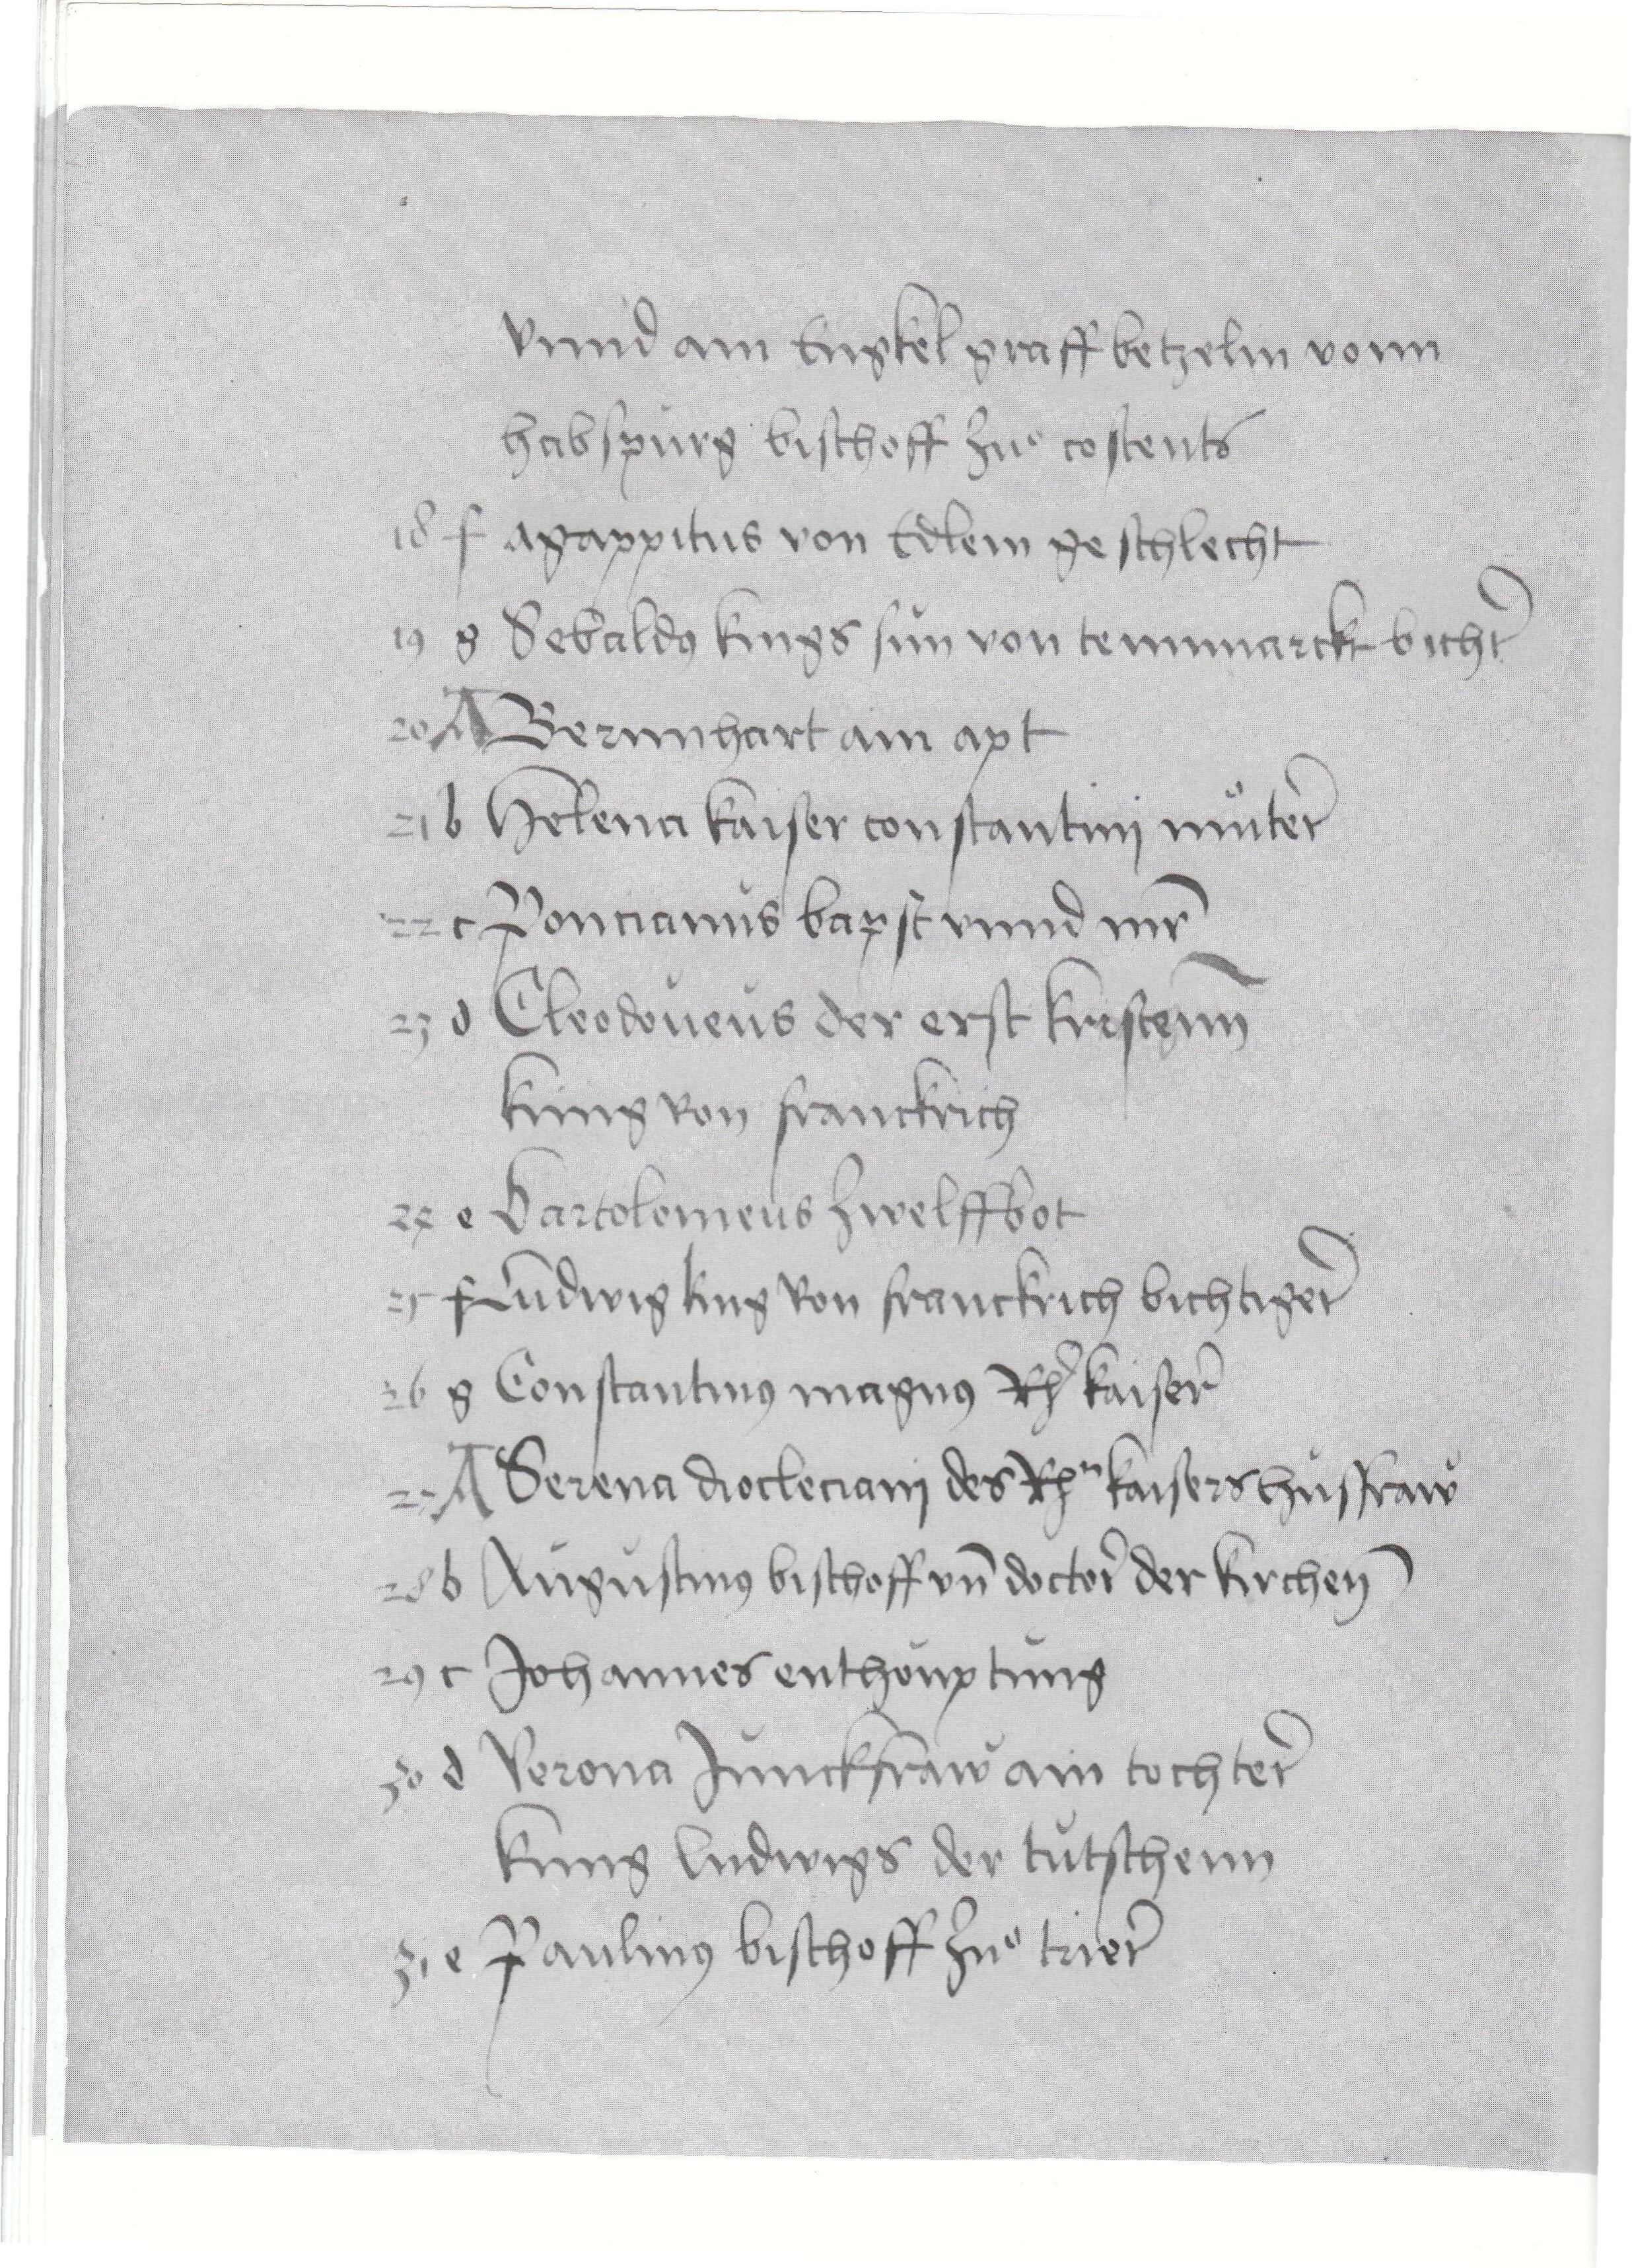 vnnd ain Engkel graff betzelin vonn
habspùrg bischoff zuͦ costents
18 f agappitus von Edlem geschlecht
19 g Sebaldꝰ kings sùn von tennmarckt bichtr̄
20 A Bernnhart ain apt
21 b Helena kaiser constantinj muͦter
22 c Poncianùs bapst vnnd mr̄
23 d Cleodoueùs der erst kristenn
kùng von franckrich
24 e Bartolomeùs zwelffbot
25 f Lùdwig king von franckrich bichtiger
26 g Constantinꝰ magnꝰ Rh̄r kaiser
27 A Serena diocleciani des Rhn kaisers hùsfraw
28 b Aùgùstinꝰ bischoff vn̄ doctor der kirchen
29 c Johannes enthoùptùng
30 d Verona Jùnckfraw ain tochter
kùng ludwigs der tùtschenn
31 e Paulinꝰ bischoff zuͦ trier